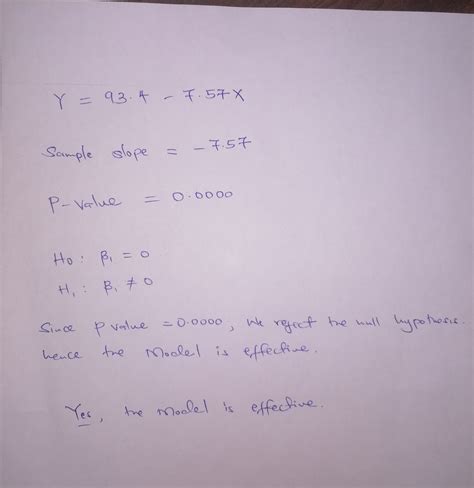 Y = 93.4 - 7.57X
Sample slope = -7.57
P-value = 0.0000
H0 : β1 = 0
H1 : β1 ≠ 0
Since p value = 0.0000, we reject the null hypothesis.
hence the Model is effective.
Yes, the model is effective.